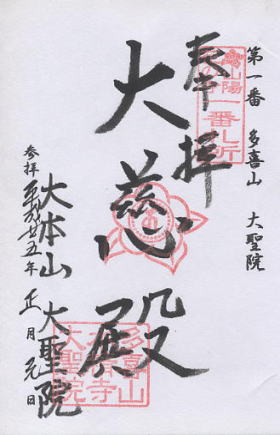 第一番 多喜山 大聖院
奉拝
一番札所
大慈殿
大本山 大聖院
参拝 平成廿五年 正月元日
多喜山
大聖院